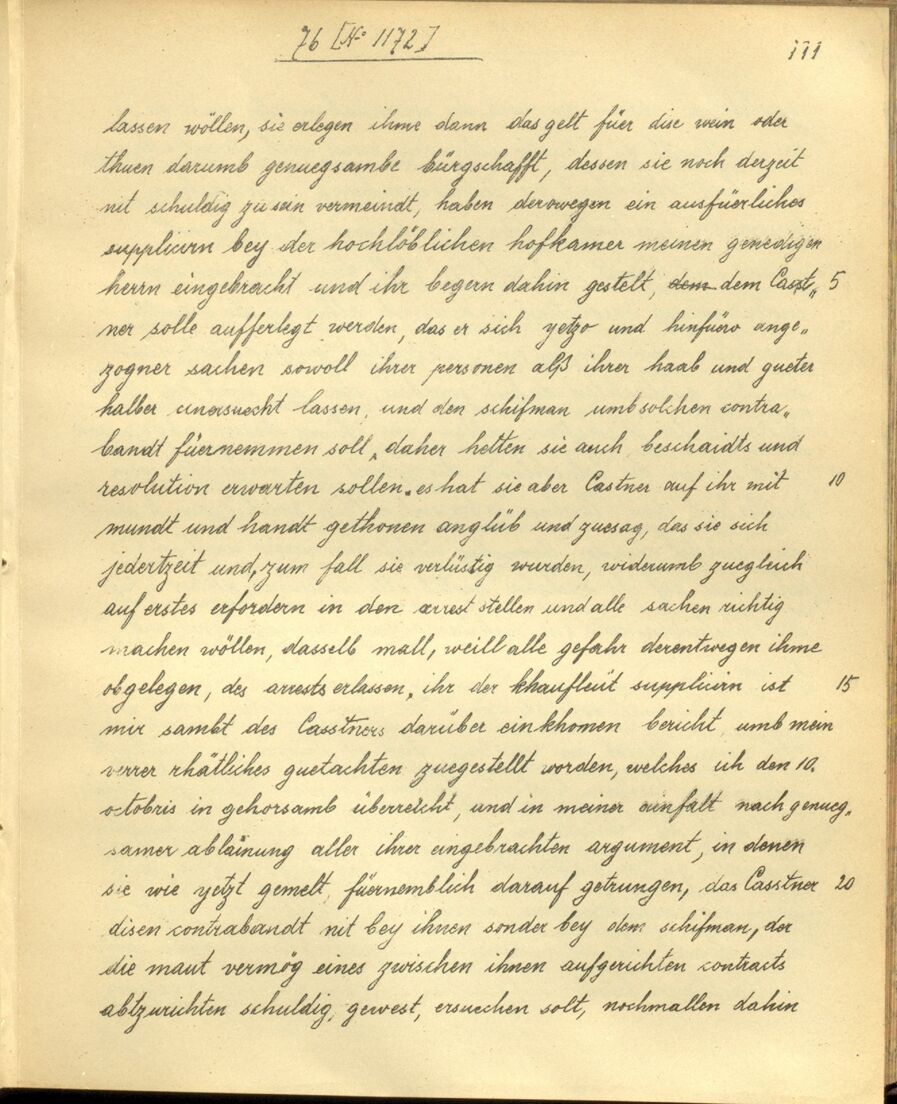 76 [No 1172]
111
lassen wöllen, sie erlegen ihme dann das gelt füer dise wein oder
thuen darumb genuegsambe bürgschafft, dessen sie noch derzeit
nit schuldig zu sein vermeindt, haben derowegen ein ausfüerliches
suppliciern bey der hochlöblichen hofkamer meinen genedigen
herrn eingebracht und ihr begern dahin gestelt, dem dem Casst„ 5
ner solle aufferlegt werden, das er sich yetzo und hinfüro ange„
zogner sachen sowoll ihrer personen alß ihrer haab und gueter
halber unersuecht lassen, und den schifman umb solchen contra„
bandt füernemmen soll, daher hetten sie auch beschaidts und
resolution erwarten sollen. es hat sie aber Castner auf ihr mit 10
mundt und handt gethonen anglüb und zuesag, das sie sich
jedertzeit und, zum fall sie verlüstig wurden, widerumb zuegleich
auf erstes erfordern in den arrest stellen und alle sachen richtig
machen wöllen, dasselb mall, weill alle gefahr derentwegen ihme
obgelegen, des arrests erlassen, ihr der khaufleüt suppliciern ist 15
mir sambt des Casstners darüber einkhomen bericht umb mein
verrer rhätliches guetachten zuegestellt worden, welches ich den 10.
octobris in gehorsamb überreicht, und in meiner ainfalt nach genueg„
samer ablainung aller ihrer eingebrachten argument, in denen
sie wie yetzt gemelt, füernemblich darauf getrungen, das Casstner 20
disen contrabandt nit bey ihnen sonder bey dem schifman, der
die maut vermög eines zwischen ihnen aufgerichten contracts
abtzurichten schuldig, gewest, ersuechen solt, nochmallen dahin